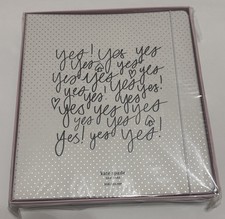 yes! yes yes
yes yes yes
yes yes yes
yes yes! yes
yes yes yes
yes yes yes
yes! yes yes!
kate spade